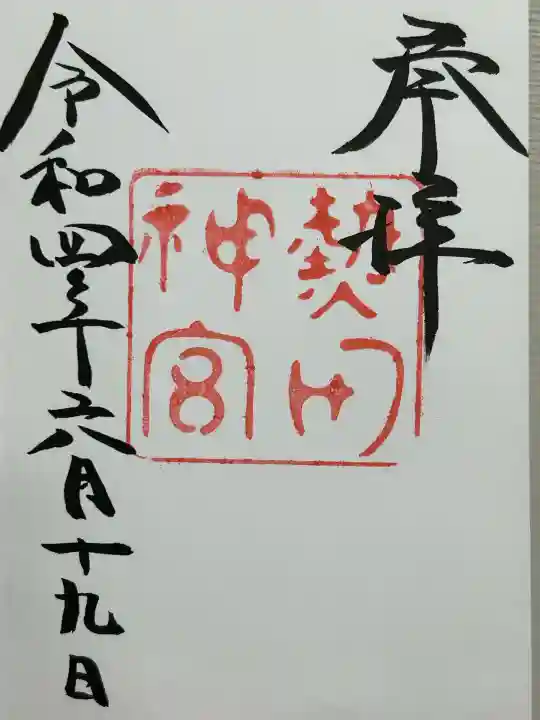 奉拝
熱田
神宮
令和四年六月十九日